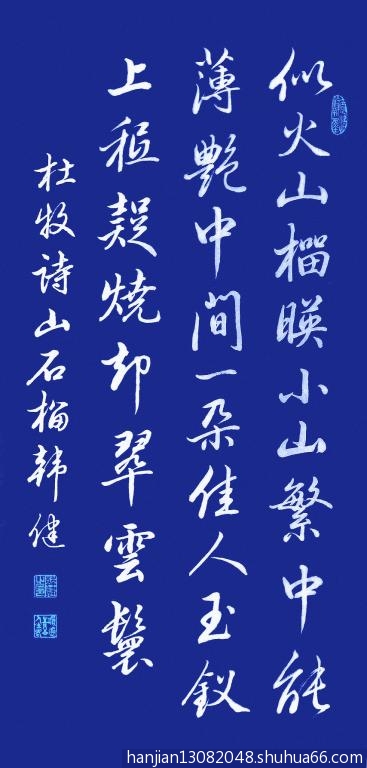 似火山榴暎小山繁中能
薄艶中間一朵佳人玉釵
上秖疑燒却翠雲鬟
杜牧诗山石榴韩健
hanjian13082048.shuhua66.com